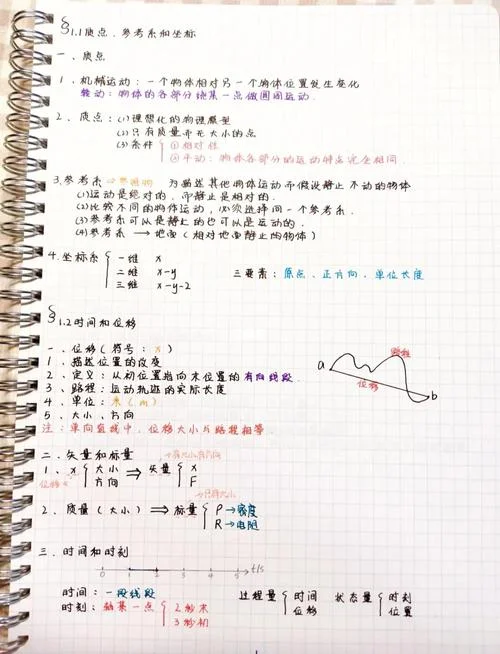 §1.1质点、参考系和坐标
一、质点
1、机械运动：一个物体相对另一个物体位置发生变化
转动：物体的各部分绕某一点做圆周运动.
2、质点：(1)理想化的物理模型
(2)只有质量而无大小的点
(3)条件 { ①相对性
②平动：物体各部分的运动特点完全相同.
3.参考系⇒参照物 为描述其他物体运动而假设静止不动的物体
(1)运动是绝对的，而静止是相对的.
(2)比较不同的物体运动，必须选择同一个参考系.
(3)参考系可以是静止的也可以是运动的.
(4)参考系 → 地面(相对地面静止的物体)
4.坐标系 { 一维 x
二维 x-y 三要素：原点、正方向、单位长度
三维 x-y-z
§1.2时间和位移
一、位移(符号：x)
1、描述位置的改变
2、定义：从初位置指向末位置的有向线段.
3、路程：运动轨迹的实际长度
4、单位：米(m)
5、大小、方向
注：单向直线中，位移大小与路程相等.
a 路程 位移 b
二、矢量和标量 →有大小有方向
1、x { 大小 ⇒ 矢量 { x
位移← 方向 F
→只有大小
2、质量(大小) ⇒ 标量 { ρ→密度
R→电阻
三、时间和时刻
0 1 2 3 4 5 t/s
时间：一段线段 过程量 { 时间 状态量 { 时刻
时刻：轴某一点 { 2秒末 位移 位置
3秒初